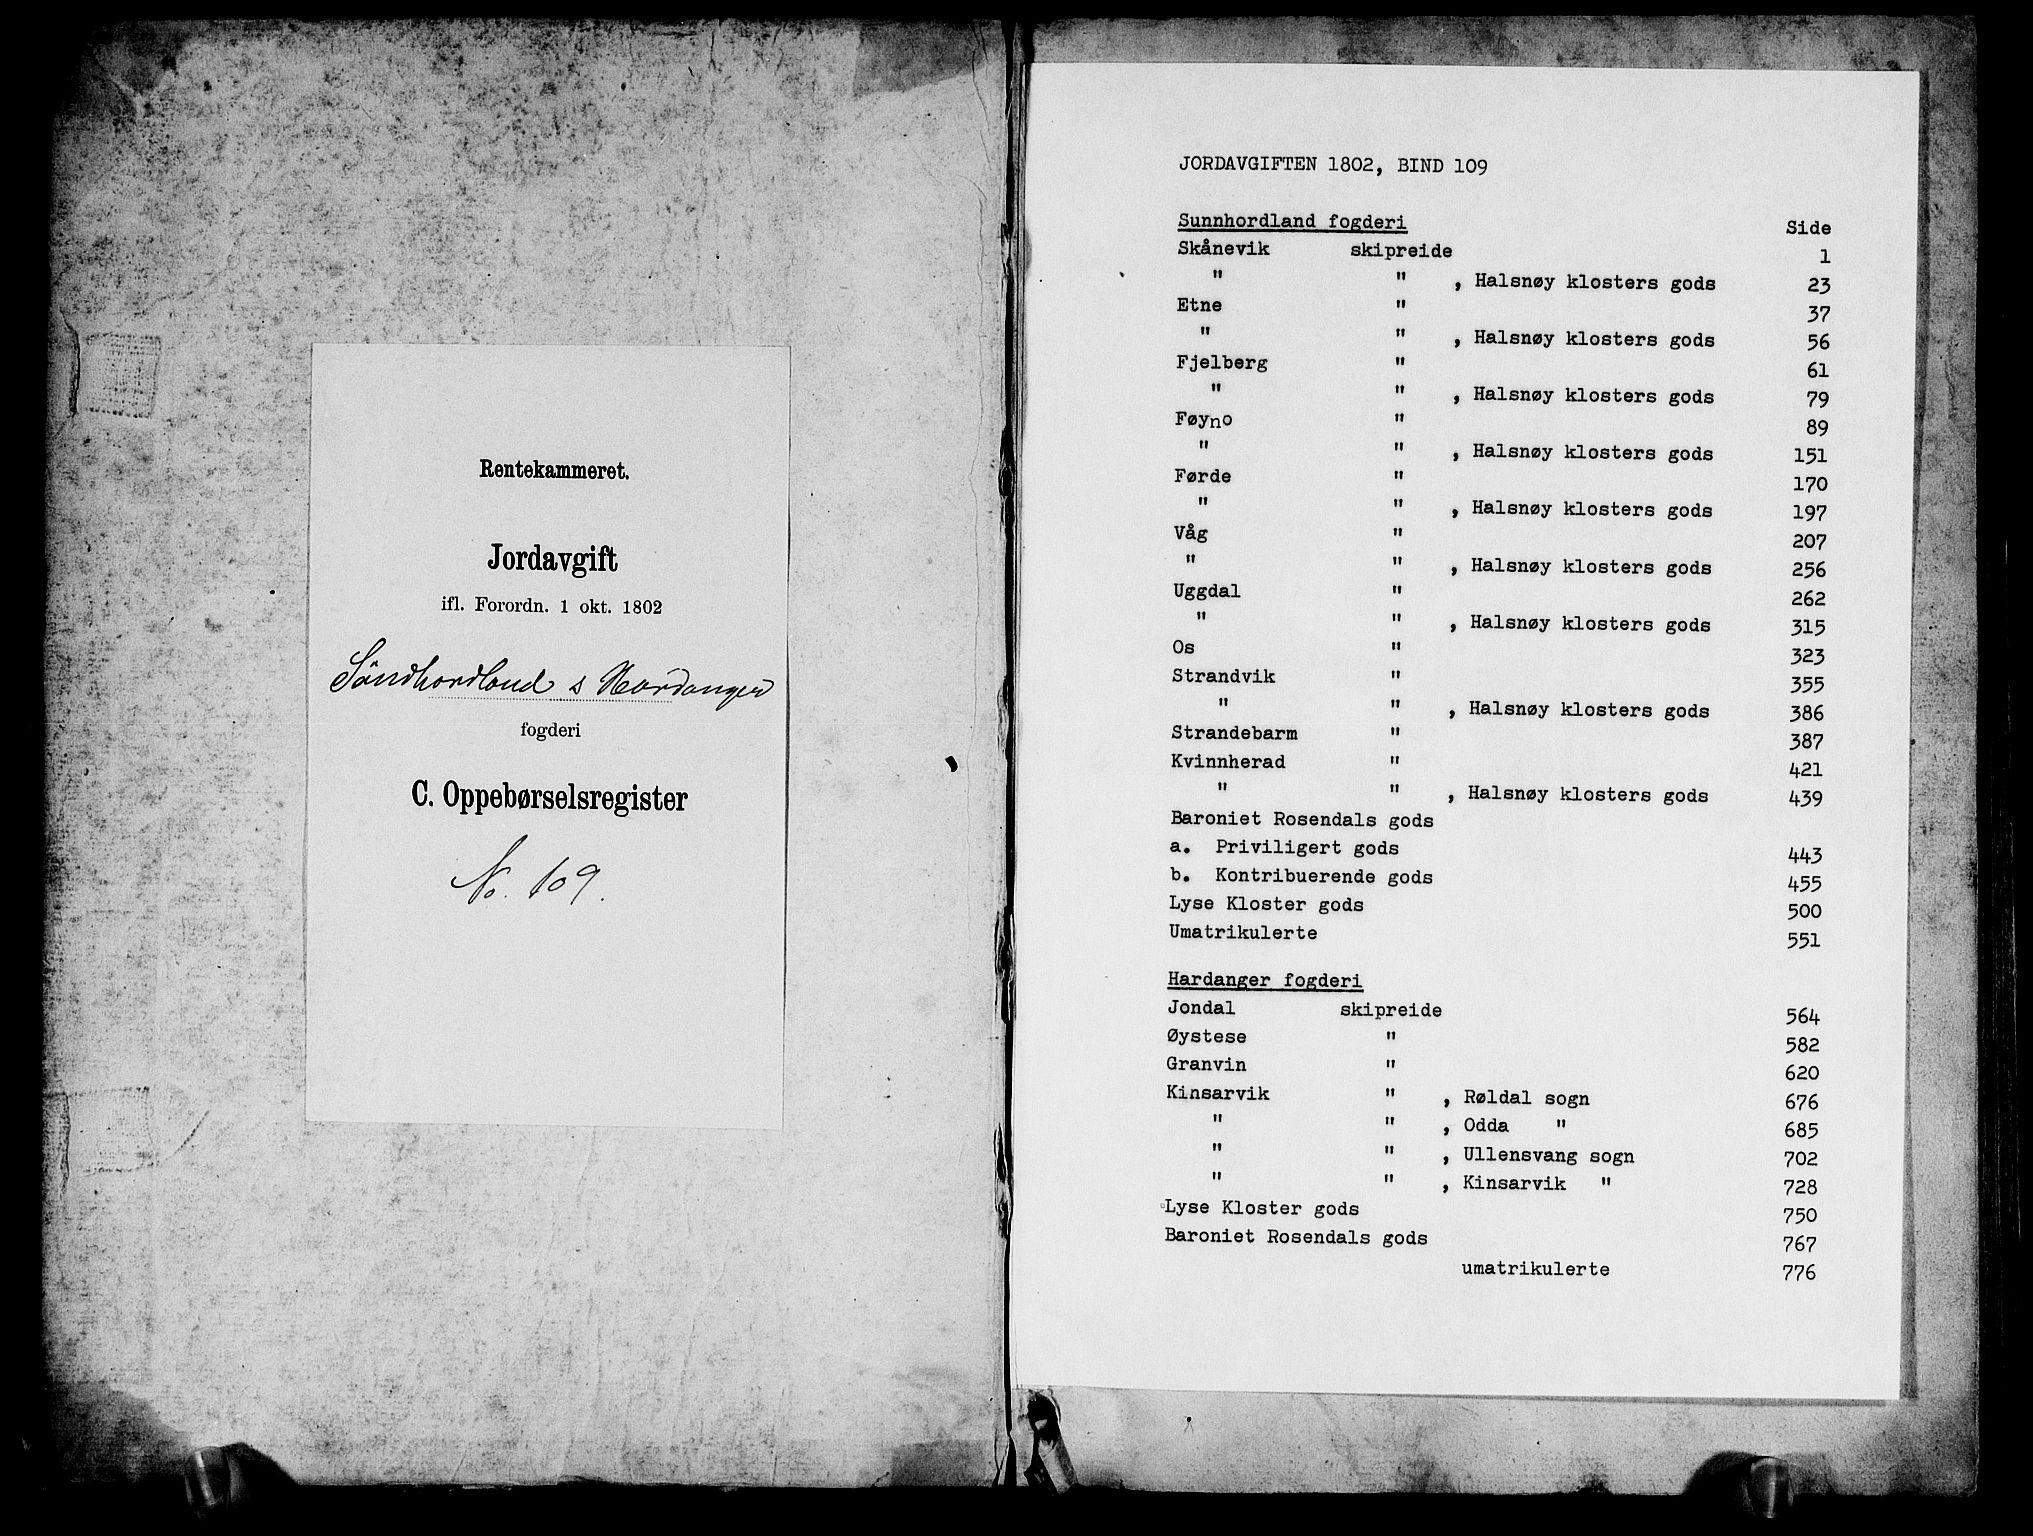 Rentekammeret.
Jordavgift
ifl. Forordn. 1 okt. 1802
Söndhordland & Hardanger
fogderi
C. Oppebørselsregister
No. 109.
JORDAVGIFTEN 1802, BIND 109
Sunnhordland fogderi Side
Skånevik skipreide 1
" " , Halsnøy klosters gods 23
Etne " 37
" " , Halsnøy klosters gods 56
Fjelberg " 61
" " , Halsnøy klosters gods 79
Føyno " 89
" " , Halsnøy klosters gods 151
Førde " 170
" " , Halsnøy klosters gods 197
Våg " 207
" " , Halsnøy klosters gods 256
Uggdal " 262
" " , Halsnøy klosters gods 315
Os " 323
Strandvik " 355
" " , Halsnøy klosters gods 386
Strandebarm " 387
Kvinnherad " 421
" " , Halsnøy klosters gods 439
Baroniet Rosendals gods
a. Priviligert gods 443
b. Kontribuerende gods 455
Lyse Kloster gods 500
Umatrikulerte 551
Hardanger fogderi
Jondal skipreide 564
Øystese " 582
Granvin " 620
Kinsarvik " , Røldal sogn 676
" " , Odda " 685
" " , Ullensvang sogn 702
" " , Kinsarvik " 728
Lyse Kloster gods 750
Baroniet Rosendals gods 767
umatrikulerte 776